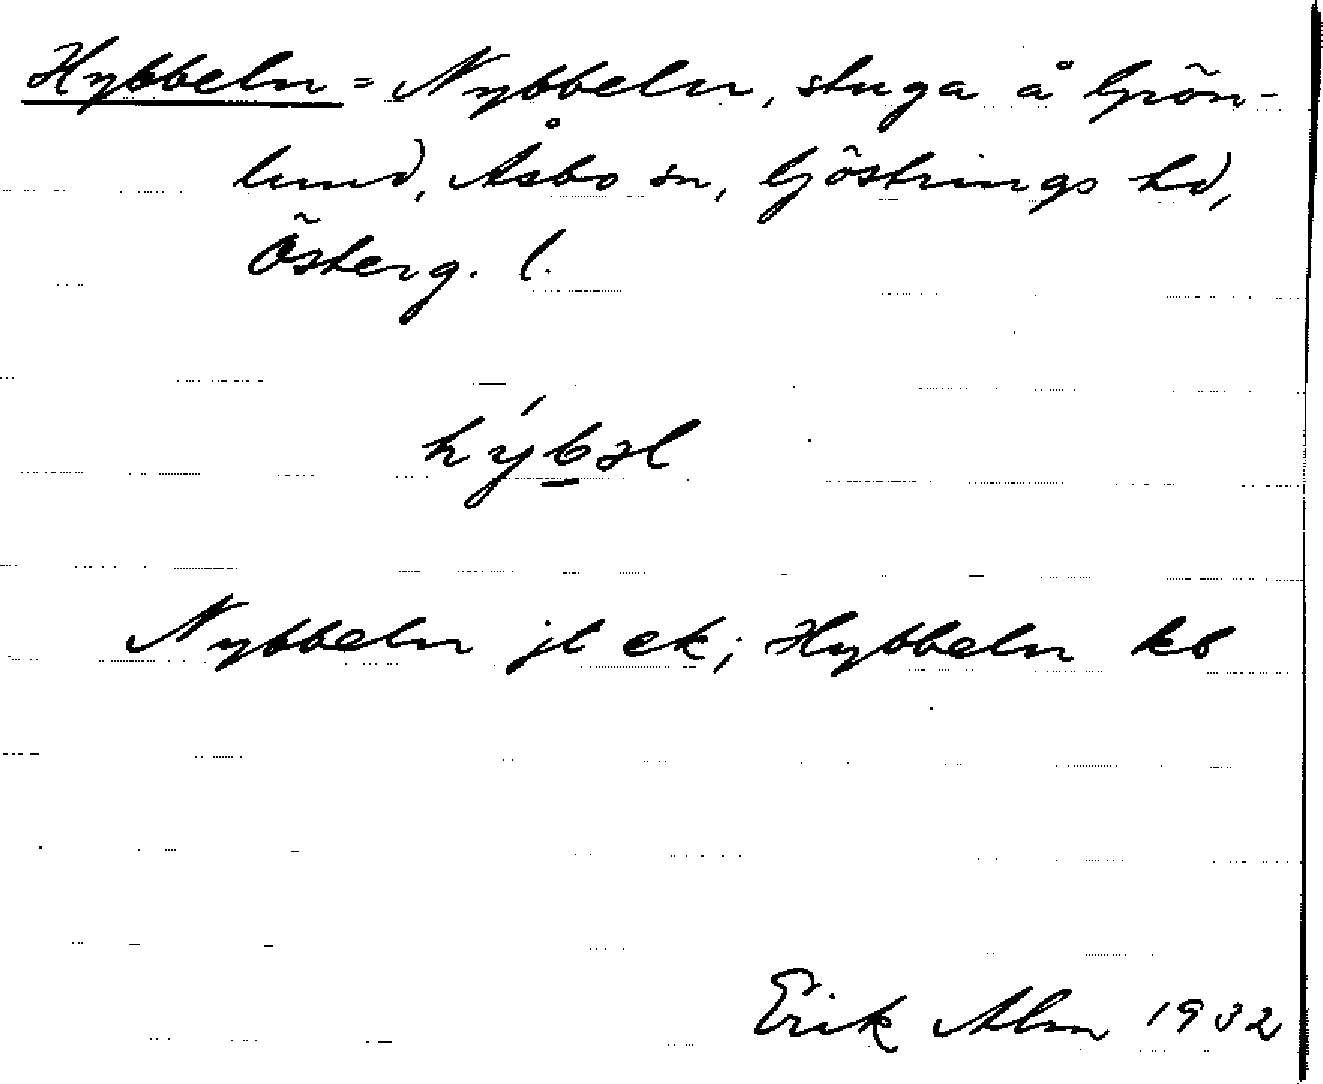 Hybbeln = Nybbeln, stuga å Grön-
lund, Åsbo sn, Göstrings hd,
Österg. l.
hýbəl
Nybbeln jl ek; Hybbeln kb
Erik Alm 1932